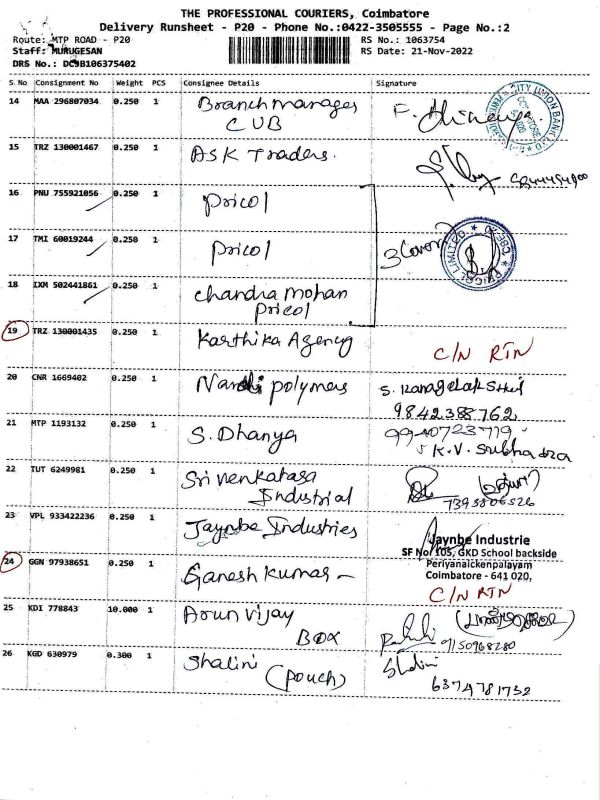 THE PROFESSIONAL COURIERS, Coimbatore
Delivery Runsheet - P20 - Phone No.:0422-3505555 - Page No.:2
Route: MTP ROAD - P20
RS No.: 1063754
Staff: MURUGESAN
RS Date: 21-Nov-2022
DRS No.: DC9B106375402
S. No Consignment No Weight PCS Consignee Details Signature
14 MAA 296807034 0.250 1 Branch manager
CUB
15 TRZ 130001467 0.250 1 ASK Traders.
16 PNU 755921056 0.250 1 Pricol
17 TMI 60019244 0.250 1 Pricol
3 Cover
PRICOL LIMITED
18 IXM 502441861 0.250 1 Chandra mohan
Pricol
19 TRZ 130001435 0.250 1 Karthika Agency C/N RTN
20 CNR 1669402 0.250 1 Nandi polymers
9842388762
21 MTP 1193132 0.250 1 S. Dhanya 9940723719
K.V. Subhadra
22 TUT 6249981 0.250 1 Sri Venkatasa
Industrial 7395806526
23 VPL 933422236 0.250 1 Jaynbe Industries
Jaynbe Industrie
SF No/ 105, GKD School backside
Periyanaickenpalayam
Coimbatore - 641 020,
24 GGN 97938651 0.250 1 Ganesh Kumar - C/N RTN
25 KDI 778843 10.000 1 Arun Vijay
BOX 9150968280
26 KGD 630979 0.300 1 Shalini
(pouch) Shalini
6374781752